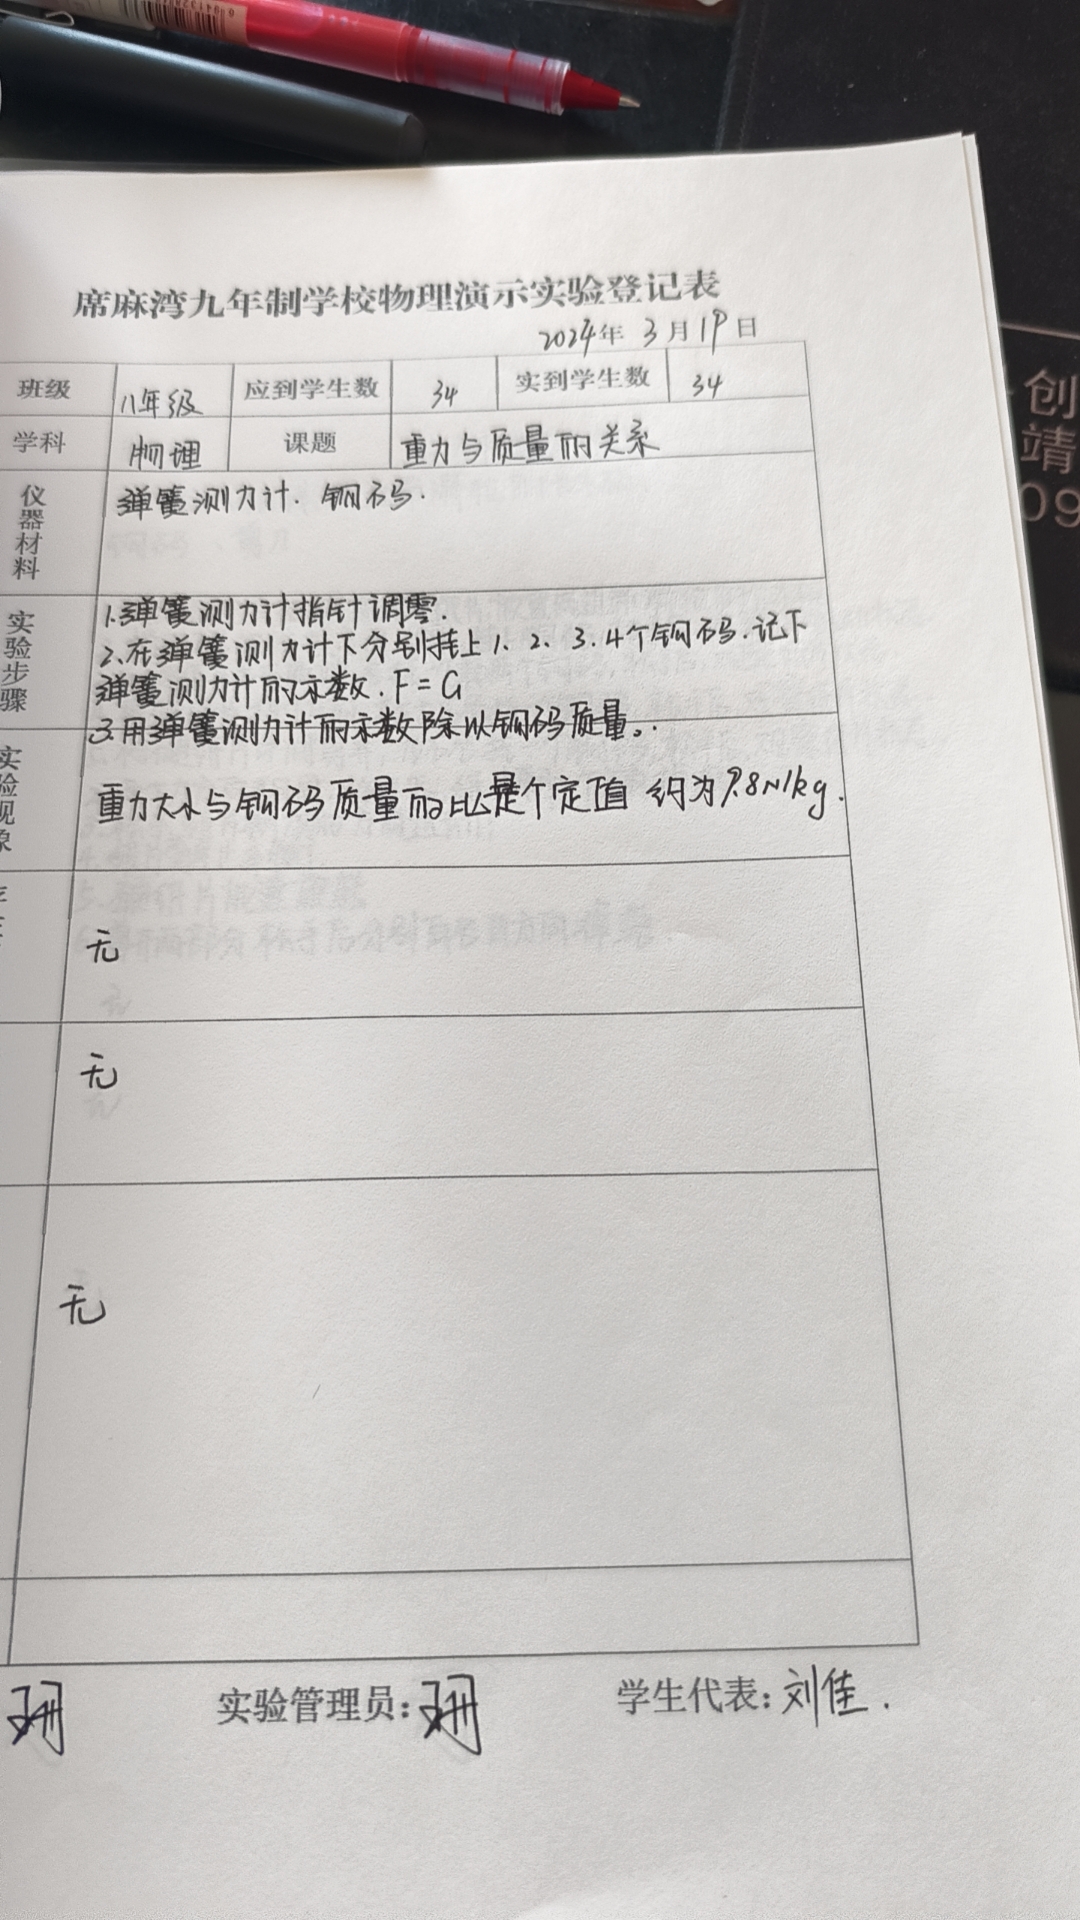 席麻湾九年制学校物理演示实验登记表
2024年 3月19日
班级 八年级 应到学生数 34 实到学生数 34
学科 物理 课题 重力与质量的关系
仪器材料 弹簧测力计. 钩码.
实验步骤 1.弹簧测力计指针调零.
2.在弹簧测力计下分别挂上1、2、3.4个钩码.记下
弹簧测力计的示数.F=G
3.用弹簧测力计的示数除以钩码质量。.
实验现象 重力大小与钩码质量的比是个定值 约为9.8N/kg.
无
无
无
珊 实验管理员:珊 学生代表:刘佳.
创
靖
09